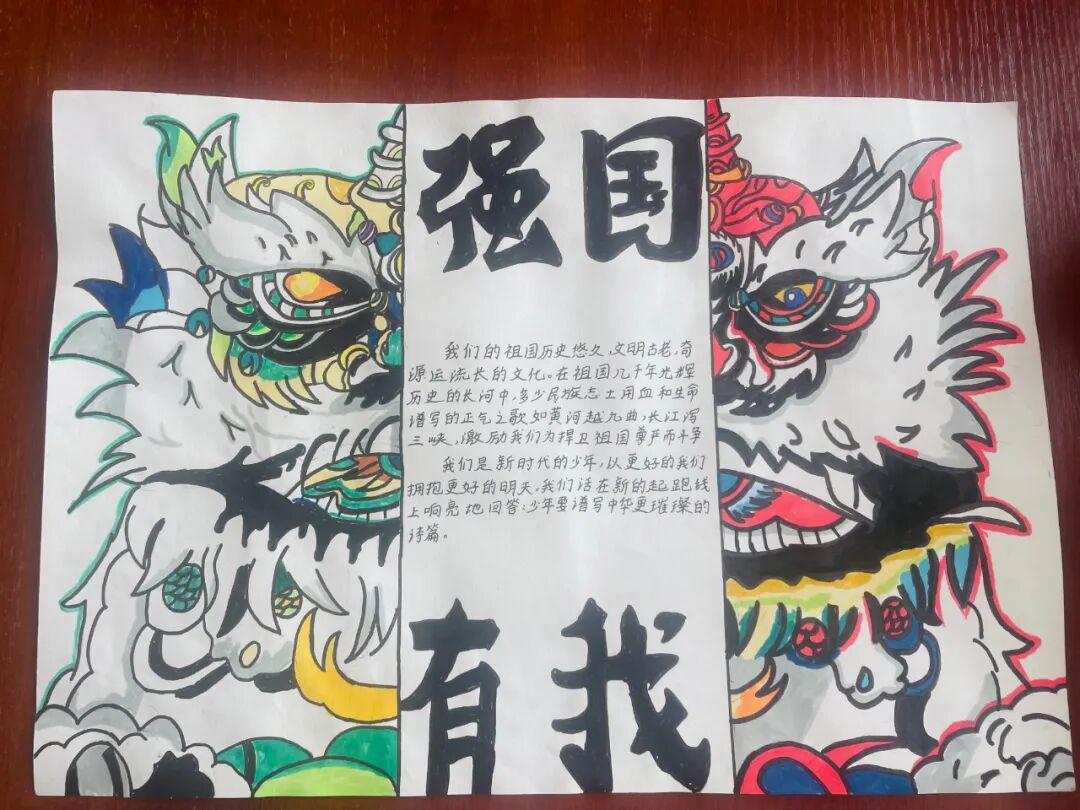 强国
我们的祖国历史悠久,文明古老,奇
源运流长的文化。在祖国几千年光辉
历史的长河中,多少民族志士用血和生命
谱写的正气之歌如黄河越九曲,长江泻
三峡,激励我们为捍卫祖国尊严而斗争
我们是新时代的少年,以更好的我们
拥抱更好的明天。我们活在新的起跑线
上响亮地回答:少年要谱写中华更璀璨的
诗篇。
有我